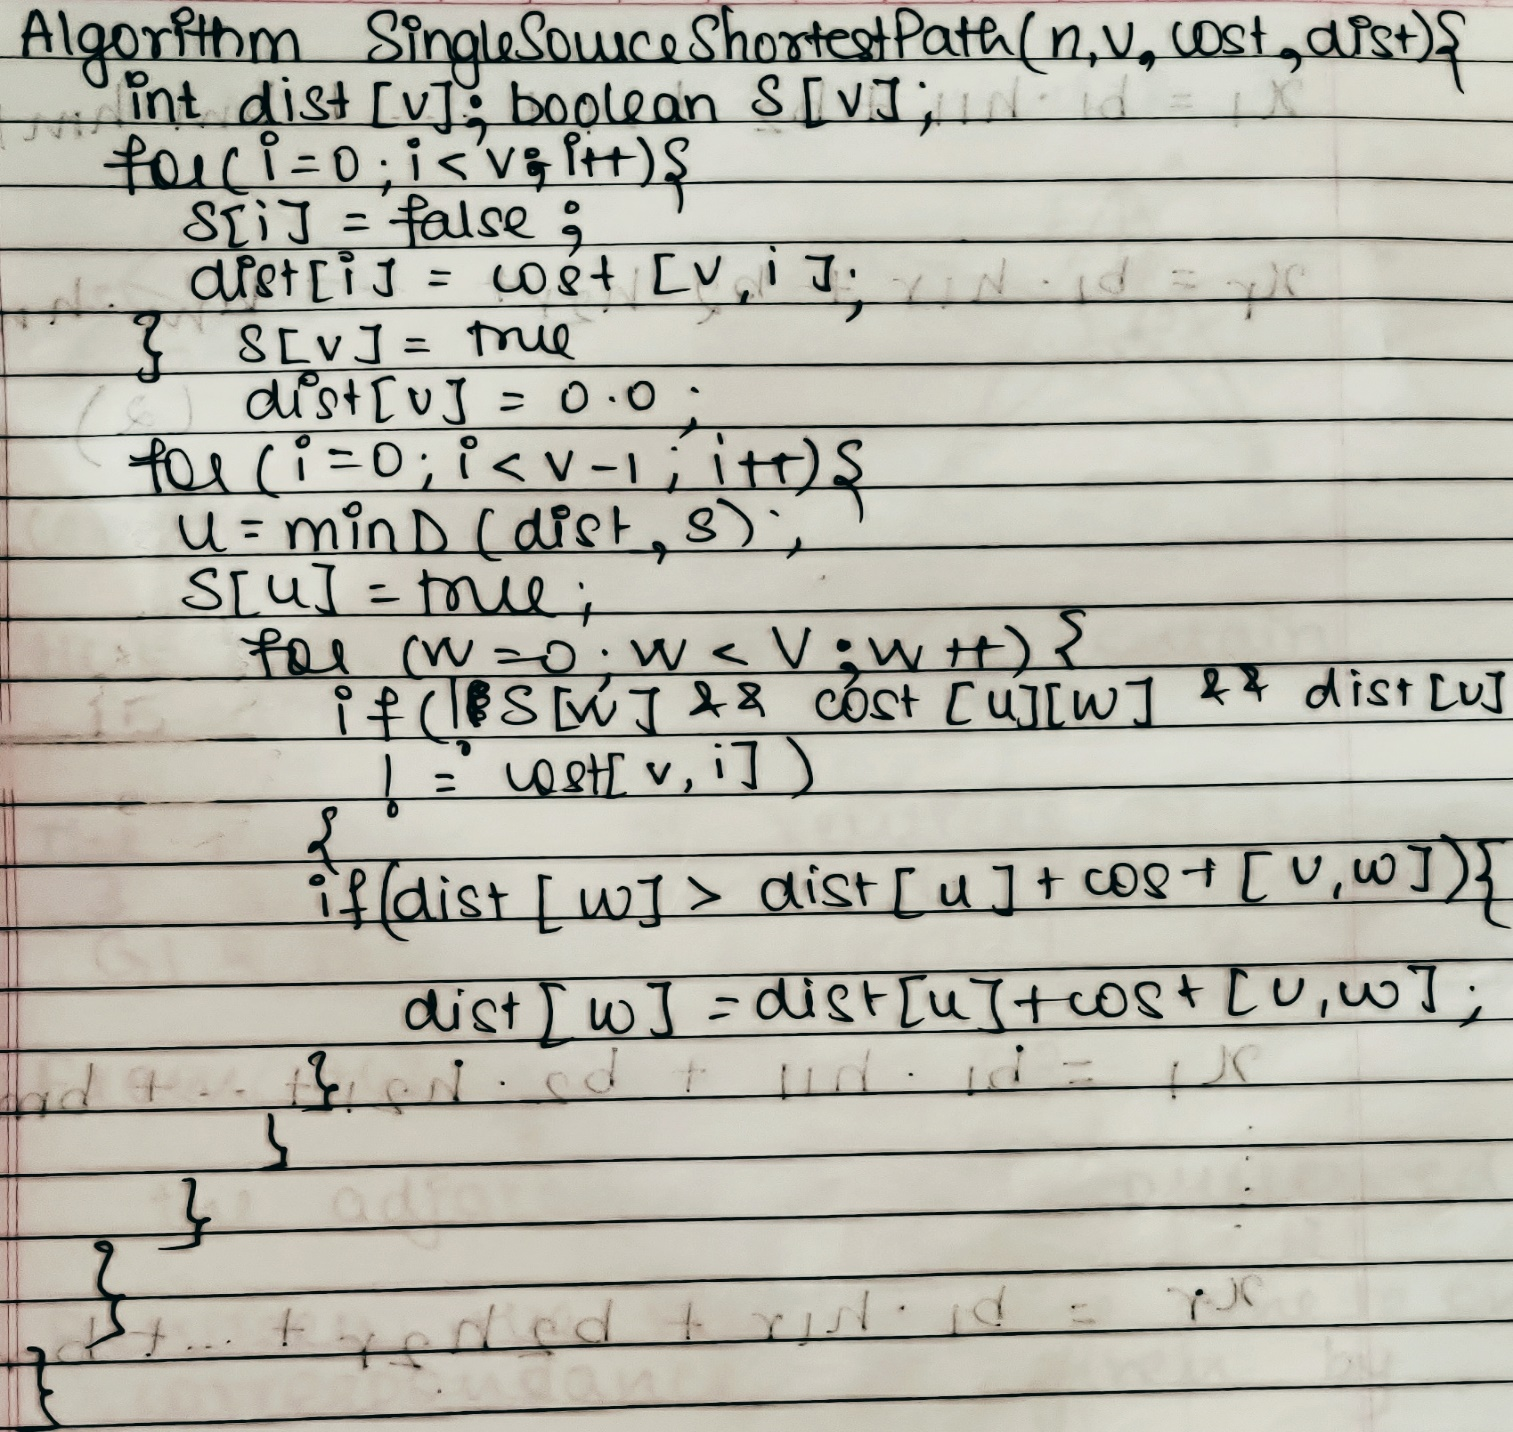 Algorithm SingleSourceShortestPath(n,v, cost, dist){
int dist [v]; boolean S[v];
for(i=0; i<v; i++){
S[i] = false;
dist[i] = cost [v, i];
} S[v] = true
dist[v] = 0.0;
for (i=0; i<v-1; i++){
u = minD (dist, S);
S[u] = true;
for (w=0; w<V; w++){
if(! S[w] && cost [u][w] && dist [u]
! = cost[v, i])
{
if(dist [w] > dist [u] + cost [v,w]){
dist [w] = dist[u]+cost [v,w];
}
}
}
}
}